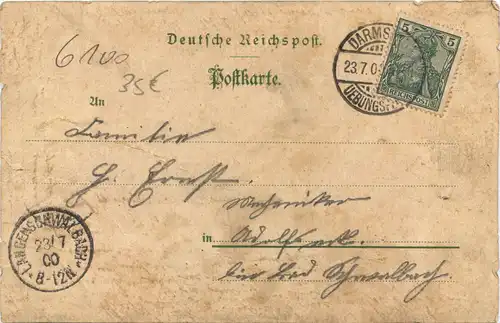 6100
35€
Deutsche Reichspost.
Postkarte.
An
Familie
H. Ernst.
Mechaniker
in Adolfseck.
bei Bad Schwalbach.
DARMS
23.7.0
UEBUNGSP
5 5
REICHSPOST
LANGENSCHWALBACH
23/7
00
8-12N